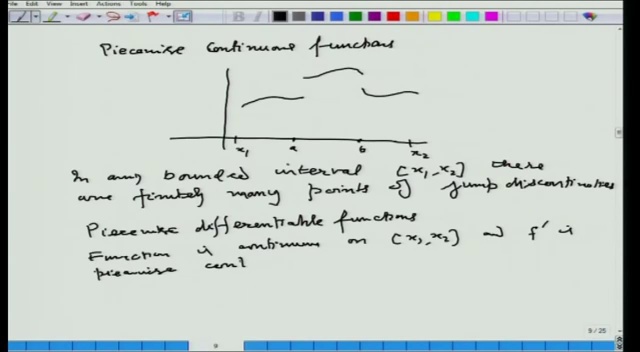 View Insert Actions Tools Help
Piecewise Continuous functions
x1 a b x2
In any bounded interval [x1, x2] there
are finitely many points of jump discontinuities
Piecewise differentiable functions
Function is continuous on [x1, x2] and f' is
piecewise cont
9 / 25
9